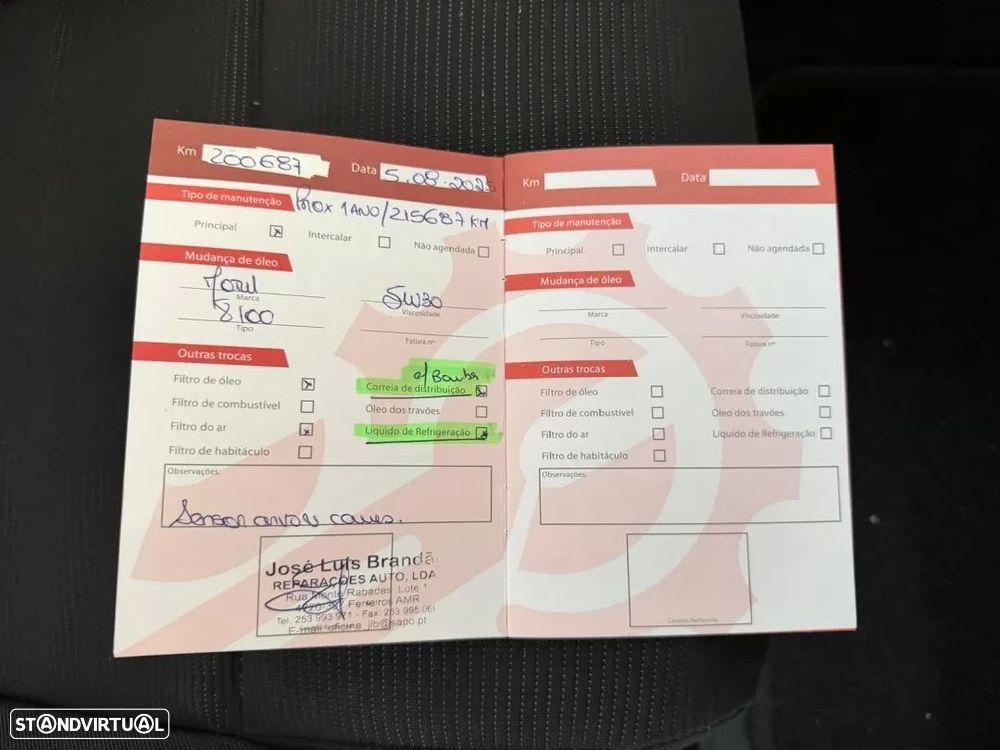 Km 200687 Data 5.08.2025
Tipo de manutenção Prox 1 ANO/215687 KM
Principal Intercalar Não agendada
Mudança de óleo
Motul 5W30
Marca Viscosidade
8100
Tipo Fatura nº
Outras trocas
c/ Bomba
Filtro de óleo Correia de distribuição
Filtro de combustível Óleo dos travões
Filtro do ar Líquido de Refrigeração
Filtro de habitáculo
Observações:
Sensor arvore cames.
José Luís Brandã
REPARAÇÕES AUTO, LDA
Rua Monte Rabadas Lote 1
Ferreiros AMR
Tel. 253 993 971 - Fax. 253 995 061
E-mail oficina_jlb@sapo.pt
Km Data
Tipo de manutenção
Principal Intercalar Não agendada
Mudança de óleo
Marca Viscosidade
Tipo Fatura nº
Outras trocas
Filtro de óleo Correia de distribuição
Filtro de combustível Óleo dos travões
Filtro do ar Líquido de Refrigeração
Filtro de habitáculo
Observações:
STANDVIRTUAL